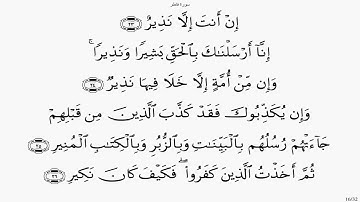 سورة فاطر
إِنْ أَنتَ إِلَّا نَذِيرٌ ٢٣
إِنَّآ أَرْسَلْنَٰكَ بِٱلْحَقِّ بَشِيرًا وَنَذِيرًا ۚ
وَإِن مِّنْ أُمَّةٍ إِلَّا خَلَا فِيهَا نَذِيرٌ ٢٤
وَإِن يُكَذِّبُوكَ فَقَدْ كَذَّبَ ٱلَّذِينَ مِن قَبْلِهِمْ
جَآءَتْهُمْ رُسُلُهُم بِٱلْبَيِّنَٰتِ وَبِٱلزُّبُرِ وَبِٱلْكِتَٰبِ ٱلْمُنِيرِ ٢٥
ثُمَّ أَخَذْتُ ٱلَّذِينَ كَفَرُوا۟ ۖ فَكَيْفَ كَانَ نَكِيرِ ٢٦
16/32